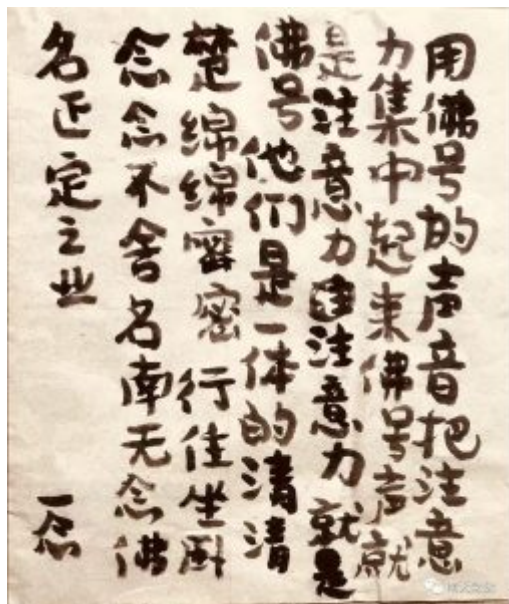 用佛号的声音把注意
力集中起来佛号声就
是注意力注意力就是
佛号他们是一体的清清
楚绵绵密密行住坐卧
念念不舍名南无念佛
名正定之业
一念